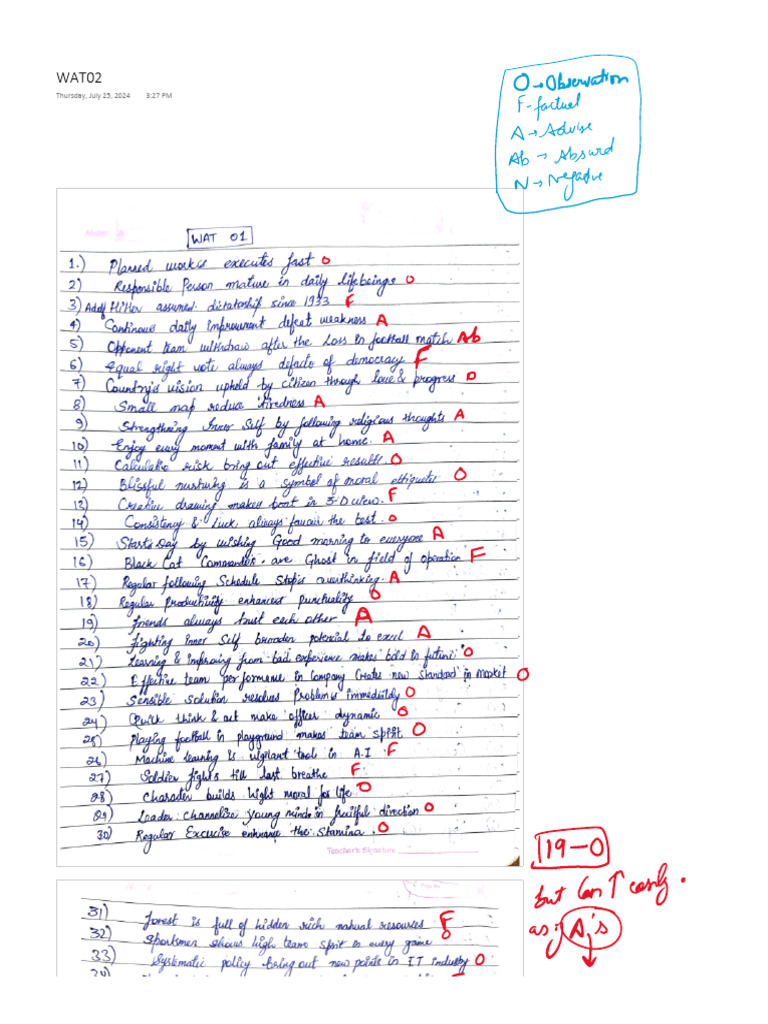 WAT02
Thursday, July 25, 2024 3:27 PM
O → Observation
F - factuel
A → Advise
Ab → Absurd
N → Negative
WAT 01
1.) Planned work is executes fast O
2) Responsible Person mature in daily life beings O
3) Adolf Hitler assumed dictatorship since 1933 F
4) Continous daily improvement defeat weakness A
5) Opponent team withdraw after the Loss in football match Ab
6) Equal right vote always defacto of democracy F
7) Country's vision uphold by citizen through love & progress O
8) Small nap reduce tiredness A
9) Strengthning Inner Self by following religious thoughts A
10) Enjoy every moment with family at home. A
11) Calculative risk bring out effective results. O
12) Blissful nurturing is a symbol of moral ettiquetes O
13) Creative drawing makes boat in 3-D view. F
14) Consistency & Luck always favour the best. O
15) Starts Day by wishing Good morning to everyone A
16) Black Cat Commandos are Ghost in field of operation F
17) Regular following Schedule Stops overthinking. A
18) Regular Productivity enhances punctuality O
19) friends always trust each other A
20) Fighting inner Self broaden potential to excel A
21) Learning & improving from bad experience makes bold in future O
22) Effective team performance in Company Creates new Standard in Market O
23) Sensible Solution resolves Problems immediately O
24) Quick think & act make officer dynamic O
25) Playing football in playground makes team spirit O
26) Machine learning is vigilant tool in A.I F
27) Soldier fights till last breathe F
28) Character builds hight moral for life O
29) Leader channelize young minds in fruitful direction O
30) Regular Excercise enhance the Stamina. O
Teacher's Signature
19-O
but Can ↑ easily.
as A's
31) Forest is full of hidden rich natural resources F
32) Sportsmen shows high team spirit in every game O
33) Systematic policy bring out new points in IT industry O